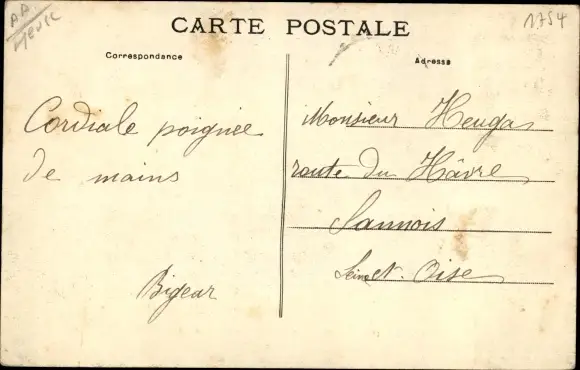 CARTE POSTALE
Correspondance
Adresse
Cordiale poignée
de mains
Bigear
Monsieur Heugas
route du Hâvre
Sannois
Seine et Oise
1754